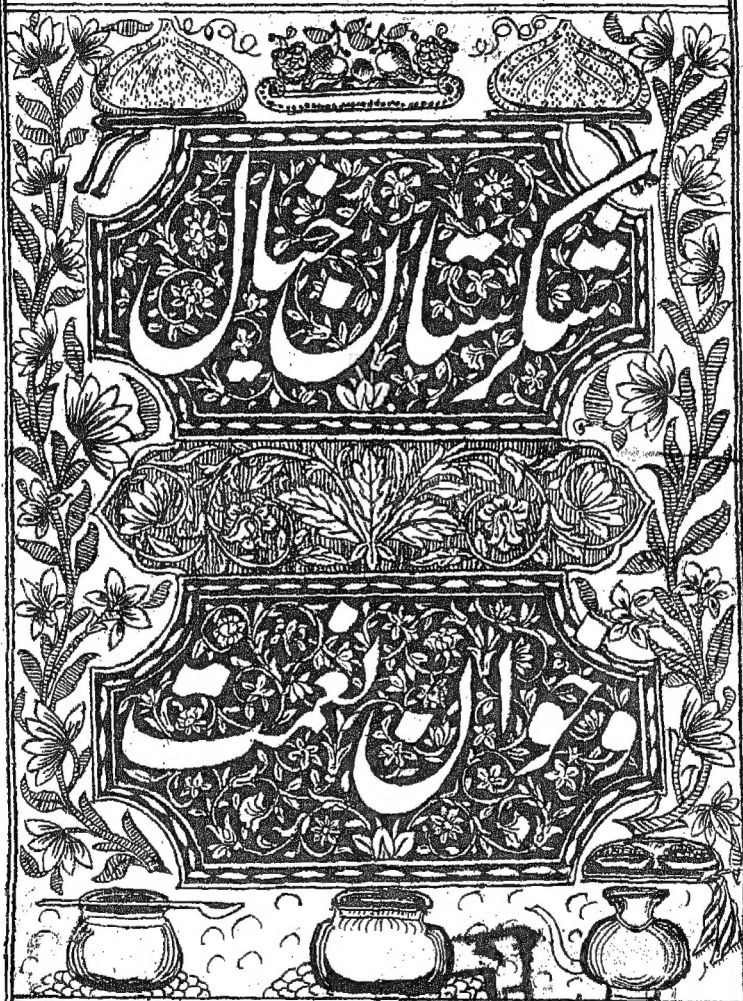 شکرستان خیال
و خوان نعمت